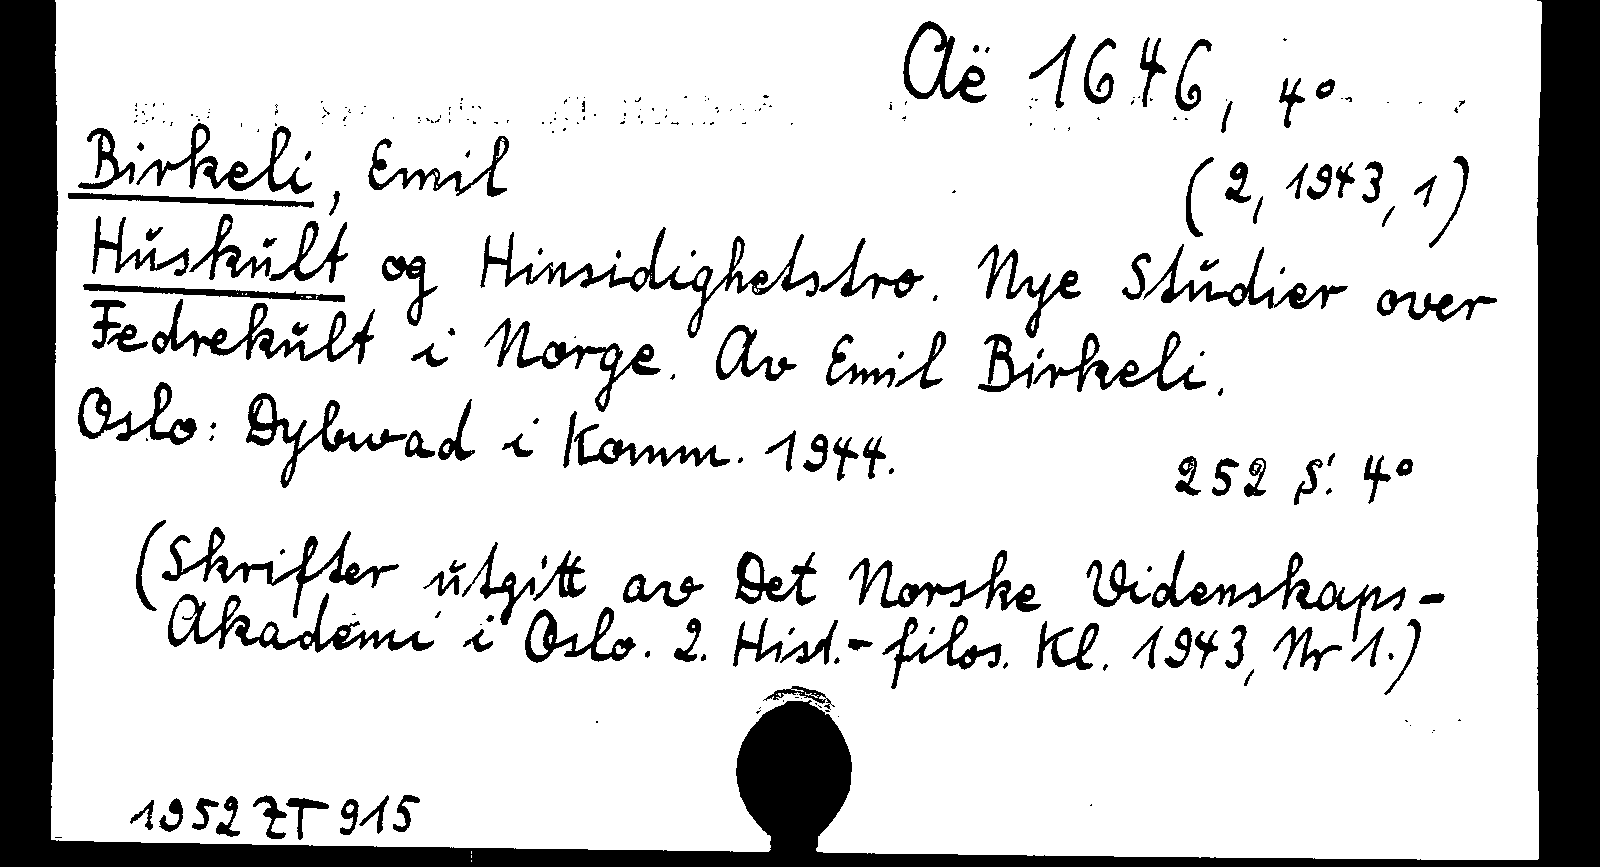 Aë 1646, 4°
Birkeli, Emil
(2, 1943, 1)
Huskult og Hinsidighetstro. Nye Studier over
Fedrekult i Norge. Av Emil Birkeli.
Oslo: Dybwad i Komm. 1944.
252 S. 4°
(Skrifter utgitt av Det Norske Videnskaps-
Akademi i Oslo. 2. Hist.-filos. Kl. 1943, Nr 1.)
1952 ZT 915